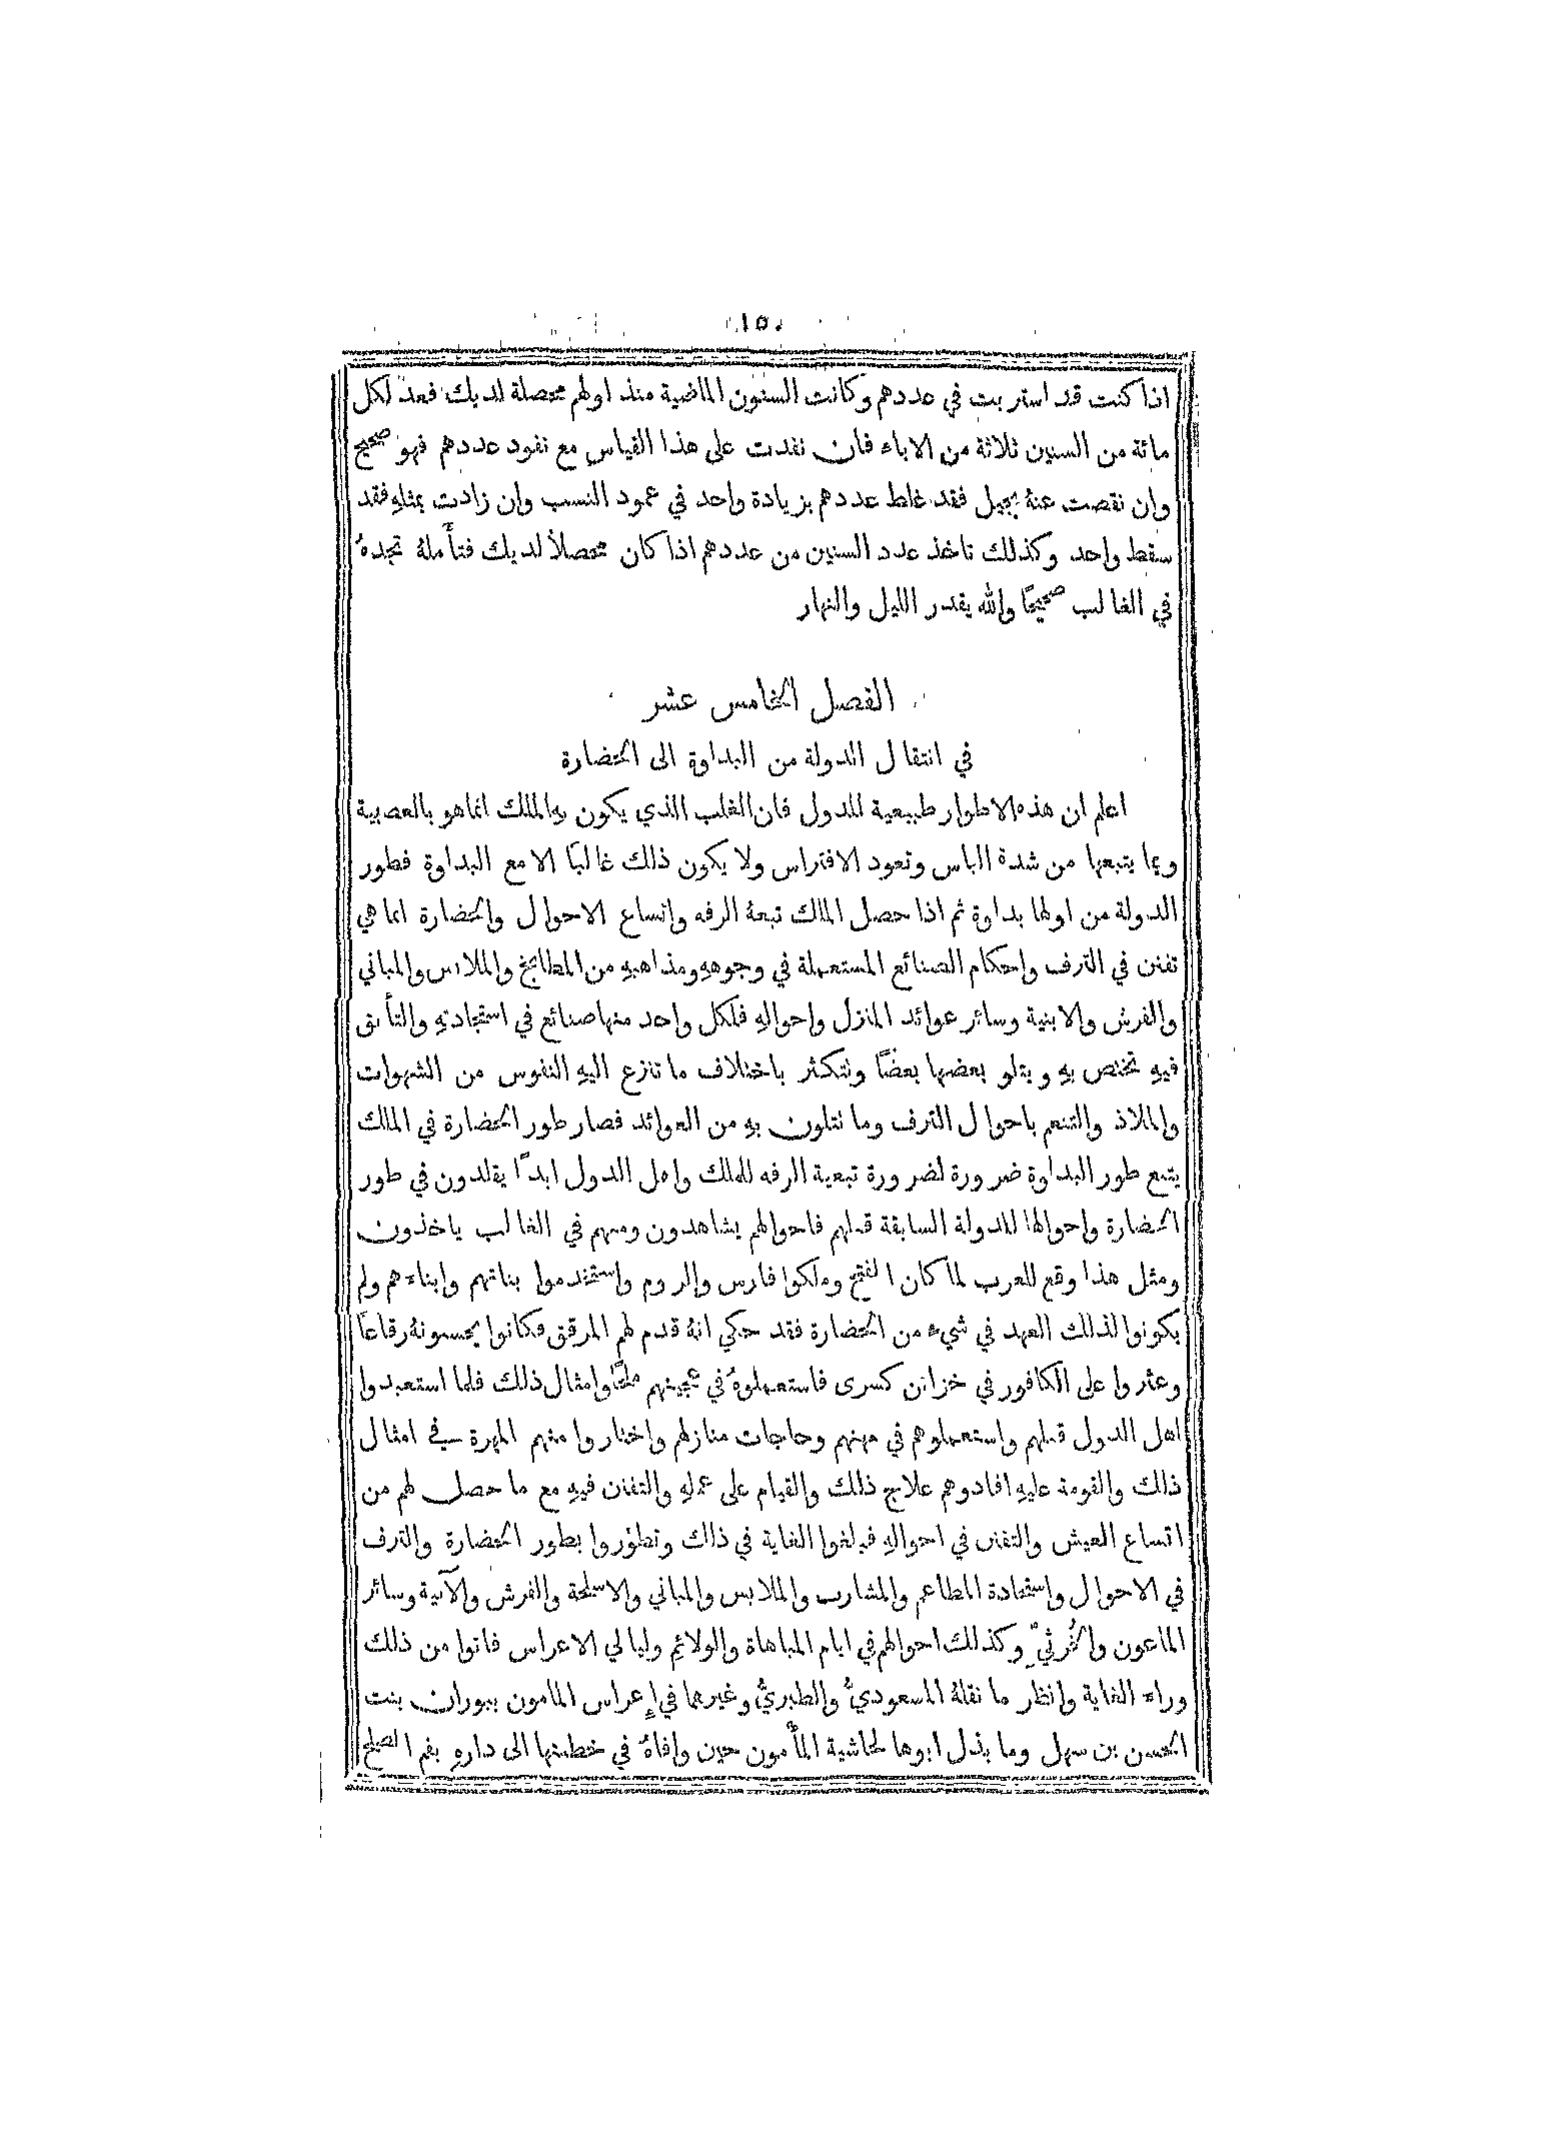 ١٥٠
اذا كنت قد استربت في عددهم وكانت السنون الماضية منذ اولهم محصلة لديك فعد لكل
مائة من السنين ثلاثة من الاباء فان نفدت على هذا القياس مع نفود عددهم فهو صحيح
وان نقصت عنهُ بجيل فقد غلط عددهم بزيادة واحد في عمود النسب وان زادت بمثلهِ فقد
سقط واحد وكذلك تاخذ عدد السنين من عددهم اذا كان محصلاً لديك فتأملهُ تجدهُ
في الغالب صحيحًا والله يقدر الليل والنهار
الفصل الخامس عشر
في انتقال الدولة من البداوة الى الحضارة
اعلم ان هذه الاطوار طبيعية للدول فان الغلب الذي يكون بهِ الملك انما هو بالعصبية
وبما يتبعها من شدة الباس وتعود الافتراس ولا يكون ذلك غالبًا الا مع البداوة فطور
الدولة من اولها بداوة ثم اذا حصل الملك تبعهُ الرفه واتساع الاحوال والحضارة انما هي
تفنن في الترف واحكام الصنائع المستعملة في وجوههِ ومذاهبهِ من المطابخ والملابس والمباني
والفرش والابنية وسائر عوائد المنزل واحوالهِ فلكل واحد منها صنائع في استجادتهِ والتأنق
فيهِ تختص بهِ ويتلو بعضها بعضًا وتتكثر باختلاف ما تنزع اليهِ النفوس من الشهوات
والملاذ والتنعم باحوال الترف وما تتلون بهِ من العوائد فصار طور الحضارة في الملك
يتبع طور البداوة ضرورة لضرورة تبعية الرفه للملك واهل الدول ابدًا يقلدون في طور
الحضارة واحوالها للدولة السابقة قبلهم فاحوالهم يشاهدون ومنهم في الغالب ياخذون
ومثل هذا وقع للعرب لما كان الفتح وملكوا فارس والروم واستخدموا بناتهم وابناءهم ولم
يكونوا لذلك العهد في شيء من الحضارة فقد حكي انهُ قدم لهم المرقق فكانوا يحسبونهُ رقاعًا
وعثروا على الكافور في خزائن كسرى فاستعملوهُ في عجينهم ملحًا وامثال ذلك فلما استعبدوا
اهل الدول قبلهم واستعملوهم في مهنهم وحاجات منازلهم واختاروا منهم المهرة في امثال
ذلك والقومة عليهِ افادوهم علاج ذلك والقيام على عملهِ والتفنن فيهِ مع ما حصل لهم من
اتساع العيش والتفنن في احوالهِ فبلغوا الغاية في ذلك وتطوَّروا بطور الحضارة والترف
في الاحوال واستجادة المطاعم والمشارب والملابس والمباني والاسلحة والفرش والآنية وسائر
الماعون والخُرثيِّ وكذلك احوالهم في ايام المباهاة والولائم وليالي الاعراس فاتوا من ذلك
وراء الغاية وانظر ما نقلهُ المسعوديُّ والطبريُّ وغيرهما في إعراس المامون ببوران بنت
الحسن بن سهل وما بذل ابوها لحاشية المأمون حين وافاهُ في خطبتها الى دارهِ بفم الصلح